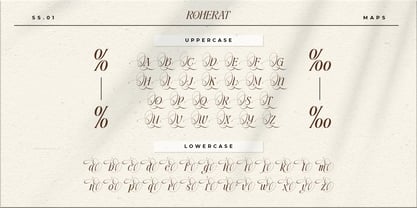 SS.01 ROHERAT MAPS
UPPERCASE
% A B C D E F G ‰
H I J K L M N
O P Q R S T
% U V W X Y Z ‰
LOWERCASE
a b c d e f g h i j k l m
n o p q r s t u v w x y z